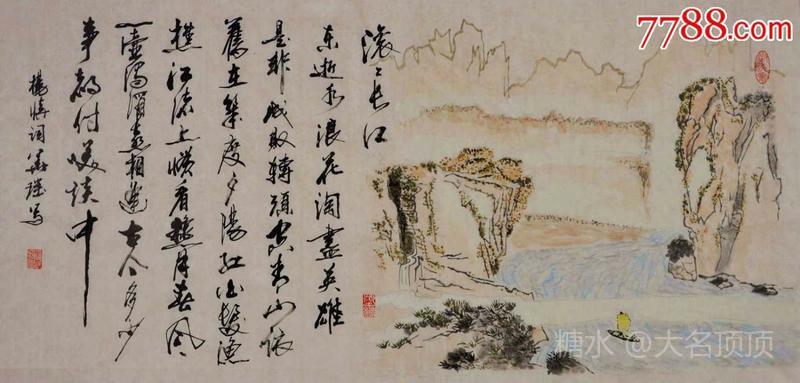 7788.com
滚〻长江
东逝水浪花淘盡英雄
是非成败轉頭空青山依
舊在幾度夕陽红白髮漁
樵江渚上惯看秋月春风
一壶濁酒喜相逢古今多少
事都付笑谈中
楊慎词 写
糖水 @大名顶顶